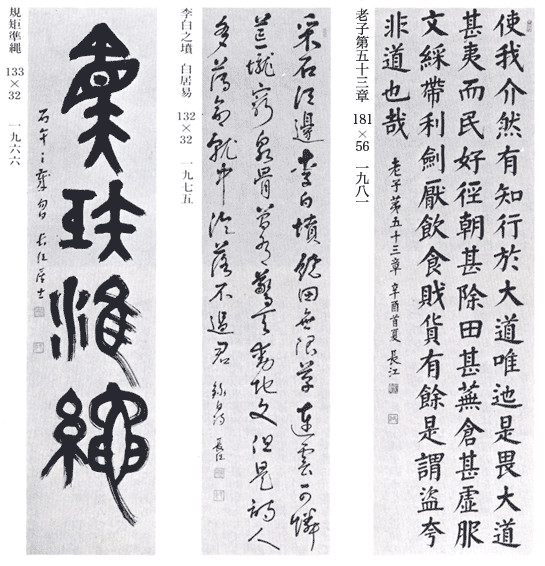 使我介然有知行於大道唯迆是畏大道
甚夷而民好徑朝甚除田甚蕪倉甚虛服
文綵帶利劍厭飲食財貨有餘是謂盜夸
非道也哉
老子第五十三章 辛酉首夏 長江
老子第五十三章 181×56 一九八一
采石江邊李白墳繞田無限草連雲可憐
荒壠窮泉骨曾有驚天動地文但是詩人
多薄命就中淪落不過君 錄白詩 長江
李白之墳 白居易 132×32 一九七五
規矩準繩
丙午 長江居士
規矩準繩 133×32 一九六六